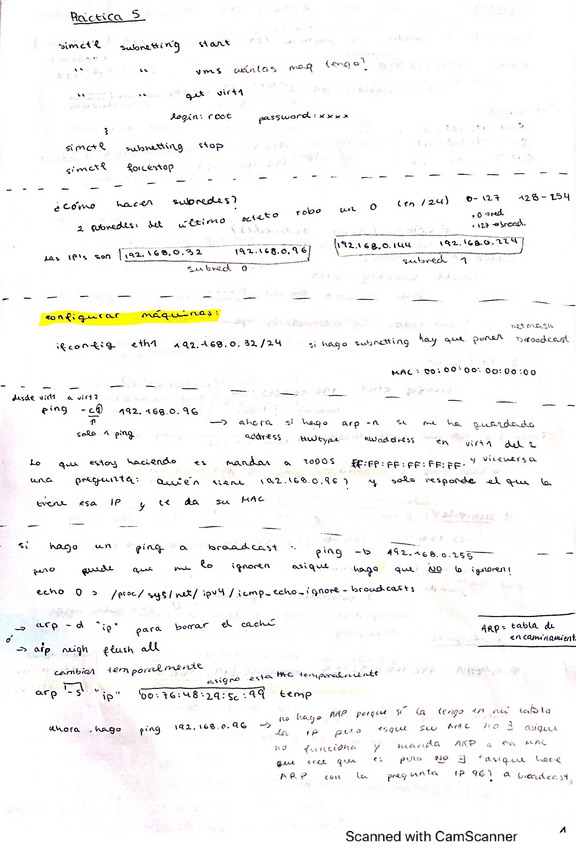 Práctica 5
simctl subnetting start
" " vms cuántas maq tengo?
" " get virt1
login: root password: xxxx
simctl subnetting stop
simctl forcestop
¿Cómo hacer subredes?
2 subredes: del último octeto robo un 0 (en /24) 0-127 128-254
.0 → red
.127 → broad.
Las IP's son 192.168.0.32 192.168.0.96 192.168.0.144 192.168.0.224
subred 0 subred 1
configurar máquinas:
netmask
ifconfig eth1 192.168.0.32/24 si hago subnetting hay que poner broadcast
MAC: 00:00:00:00:00:00
desde virt1 a virt2
ping -c1 192.168.0.96
solo 1 ping
→ ahora si hago arp -n se me ha guardado
address HWtype HWaddress en virt1 del 2
y viceversa
Lo que estoy haciendo es mandar a TODOS FF:FF:FF:FF:FF:FF
una pregunta: Quién tiene 192.168.0.96? y solo responde el que la
tiene esa IP y te da su MAC
si hago un ping a broadcast: ping -b 192.168.0.255
pero puede que me lo ignoren asique hago que NO lo ignoren!
echo 0 > /proc/sys/net/ipv4/icmp_echo_ignore-broadcasts
→ arp -d "ip" para borrar el caché
ó
→ arp neigh flush all
ARP = tabla de
encaminamient
cambian temporalmente
asigno esta MAC temporalmente
arp -s "ip" 00:76:48:29:5c:99 temp
ahora hago ping 192.168.0.96 → no hago ARP porque sí la tengo en mi tabla
la IP pero esque su MAC no ∃ asique
no funciona y manda ARP a esa MAC
que cree que es pero NO ∃ asique hace
ARP con la pregunta IP 96? a broadcast,
1
Scanned with CamScanner